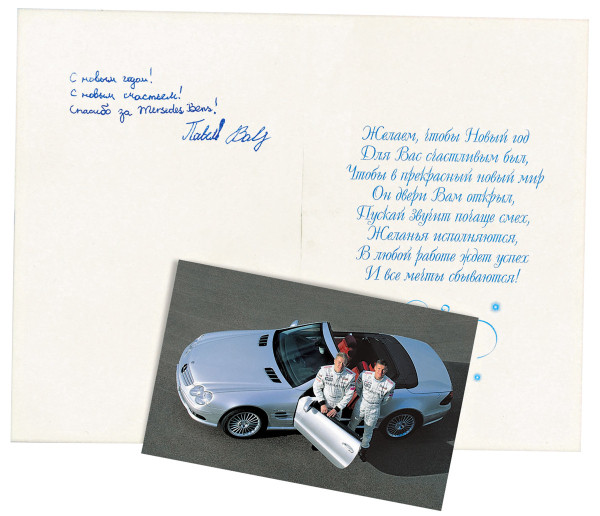 С новым годом!
С новым счастьем!
Спасибо за Mersides Bens!
Павел
Желаем, чтобы Новый год
Для Вас счастливым был,
Чтобы в прекрасный новый мир
Он двери Вам открыл,
Пускай звучит почаще смех,
Желанья исполняются,
В любой работе ждет успех
И все мечты сбываются!